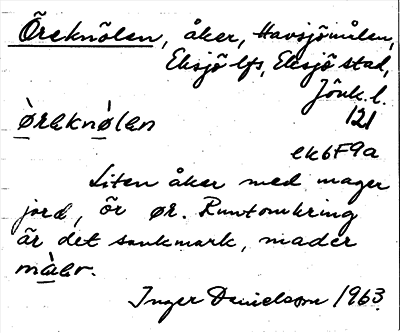 Öreknölen, åker, Havsjömålen,
Eksjö lfs, Eksjö stad,
Jönk. l.
121
òreknòlen
ek6F9a
Liten åker med mager
jord, ör ør. Runtomkring
är det sankmark, mader
màer.
Inger Danielsson 1963.